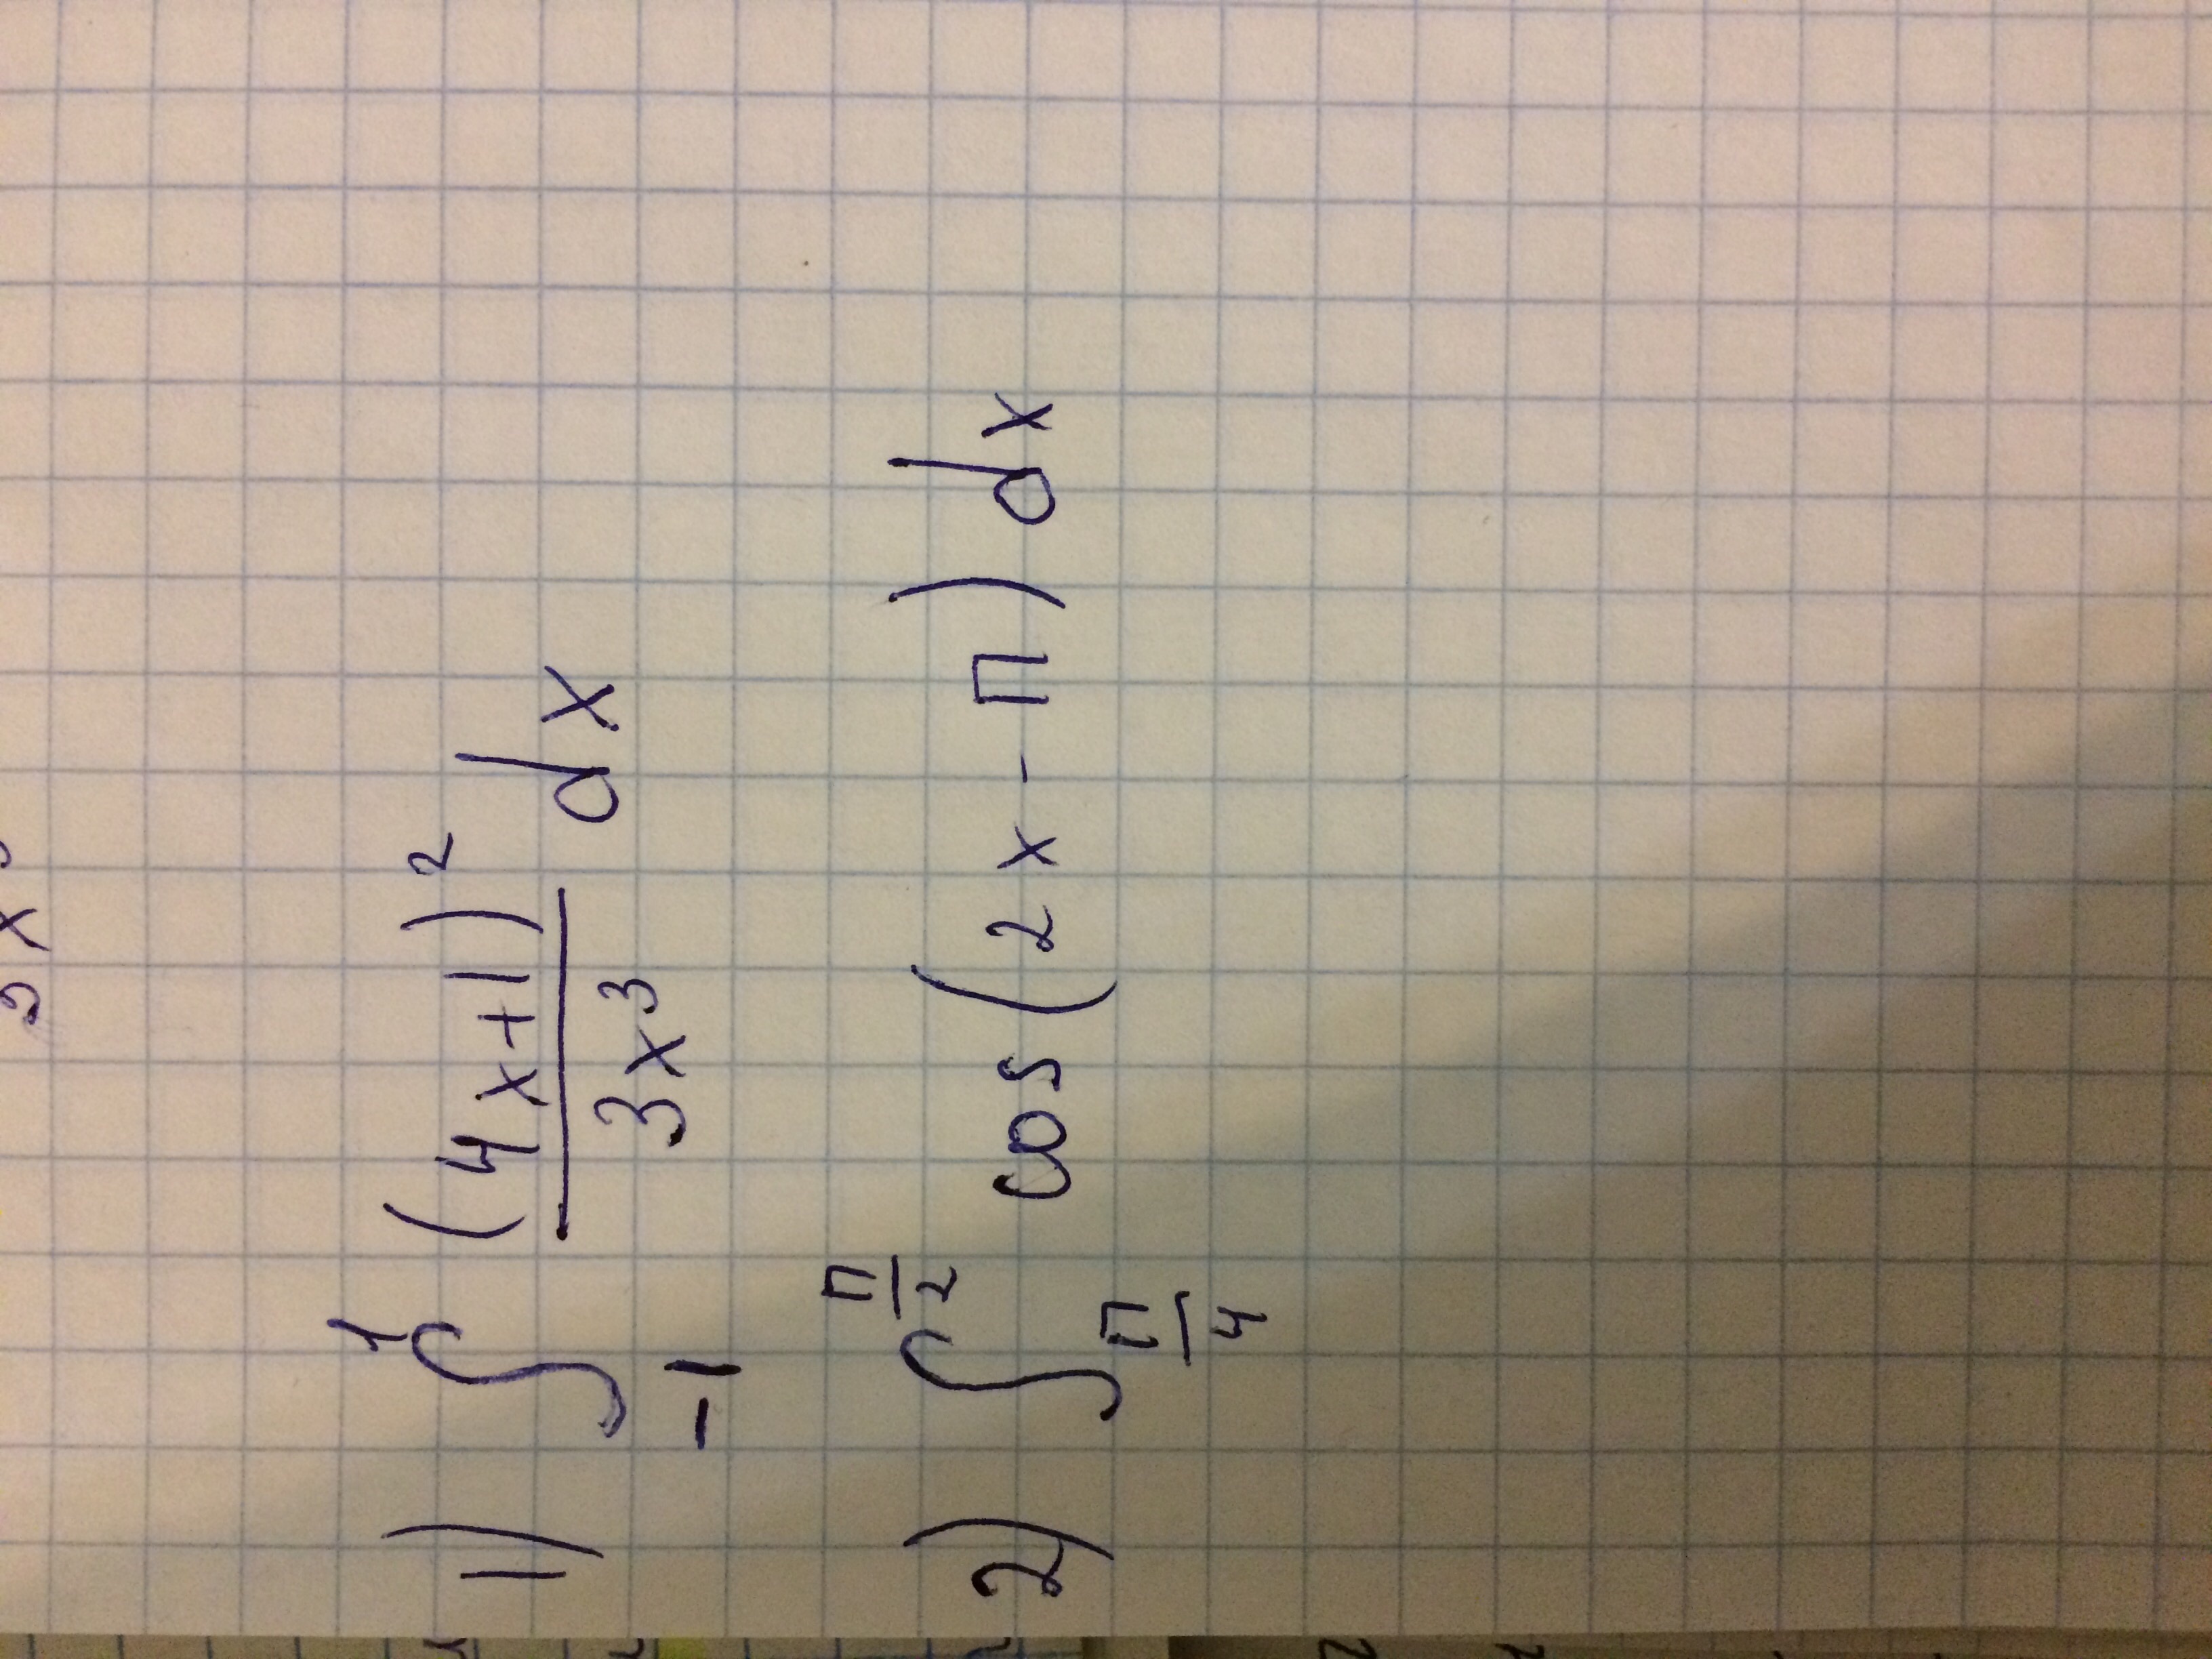 1) ∫_{-1}^{1} \frac{(4x+1)^2}{3x^3} dx
2) ∫_{\frac{π}{4}}^{\frac{π}{2}} cos(2x - π) dx